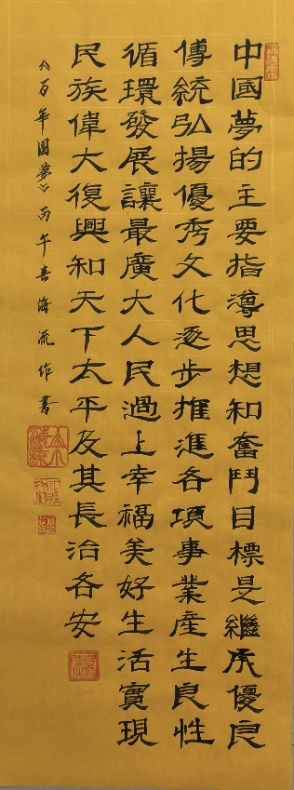 中國夢的主要指導思想和奮鬥目標是繼承優良
傳統弘揚優秀文化逐步推進各項事業產生良性
循環發展讓最廣大人民過上幸福美好生活實現
民族偉大復興和天下太平及其長治各安
《百年國夢》丙午春海流作書